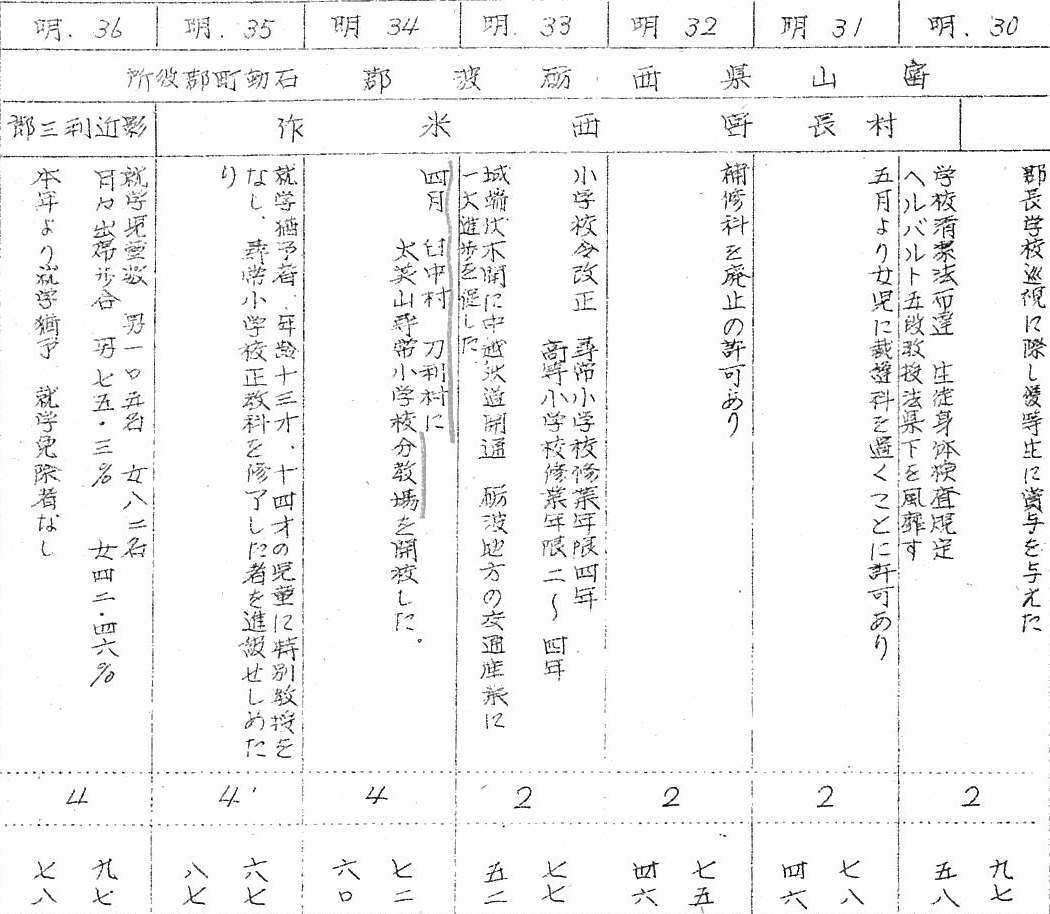 明.30
明31
明32
明.33
明34
明.35
明.36
富山県西砺波郡 石動町郡役所
村長 西米作
影近利三郎
郡長学校巡視に際し優等生に賞与を与えた
学校清潔法布達 生徒身体検査規定
ヘルバルト五段教授法県下を風靡す
五月より女児に裁縫科を置くことに許可あり
補修科を廃止の許可あり
小学校令改正 尋常小学校修業年限四年
高等小学校修業年限二〜四年
城端伏木間に中越鉄道開通 砺波地方の交通産業に
一大進歩を促した
四月 臼中村 刀利村に
太美山尋常小学校分教場を開設した。
就学猶予者、年齢十三才、十四才の児童に特別教授を
なし、尋常小学校正教科を修了した者を進級せしめた
り
就学児童数 男一〇五名 女八二名
日々出席歩合 男七五・三% 女四二・四六%
本年より就学猶予 就学免除者なし
2
2
2
2
4
4
4
九七
五八
七八
四六
七五
四六
七七
五二
七二
六〇
六七
八七
九七
七八